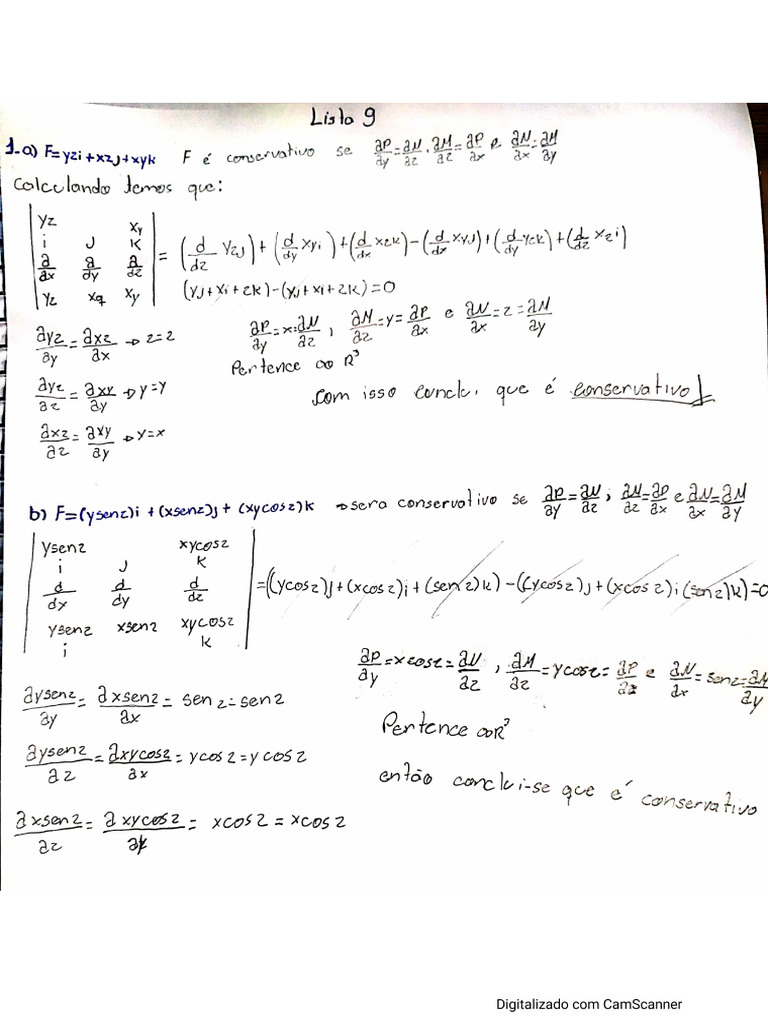 Lista 9
1-a) F=yzi+xzj+xyk F é conservativo se ∂P/∂y=∂N/∂z, ∂M/∂z=∂P/∂x e ∂N/∂x=∂M/∂y
Calculando temos que:
yz xy
i j k
∂/∂x ∂/∂y ∂/∂z
yz xz xy
= (d/dz yzj)+(d/dy xyi)+(d/dx xzk)-(d/dx xyj)+(d/dy yzk)+(d/dz xzi)
(yj+xi+zk)-(yj+xi+zk)=0
∂yz/∂y=∂xz/∂x → z=z
∂P/∂y=x=∂N/∂z, ∂M/∂z=y=∂P/∂x e ∂N/∂x=z=∂M/∂y
Pertence ao R³
∂yz/∂z=∂xy/∂y → y=y
Com isso conclui, que é conservativo
∂xz/∂z=∂xy/∂y → y=x
b) F=(ysenz)i+(xsenz)j+(xycosz)k → sera conservativo se ∂P/∂y=∂N/∂z; ∂M/∂z=∂P/∂x e ∂N/∂x=∂M/∂y
ysenz xycosz
i j k
d/dx d/dy d/dz
ysenz xsenz xycosz
i k
=((ycosz)j+(xcosz)i+(senz)k)-((ycosz)j+(xcosz)i(senz)k)=0
∂P/∂y=xcosz=∂N/∂z, ∂M/∂z=ycosz=∂P/∂z e ∂N/∂x=senz=∂M/∂y
∂ysenz/∂y=∂xsenz/∂x=senz=senz
Pertence ao R³
∂ysenz/∂z=∂xycosz/∂x=ycosz=ycosz
então conclui-se que é conservativo
∂xsenz/∂z=∂xycosz/∂y=xcosz=xcosz
Digitalizado com CamScanner